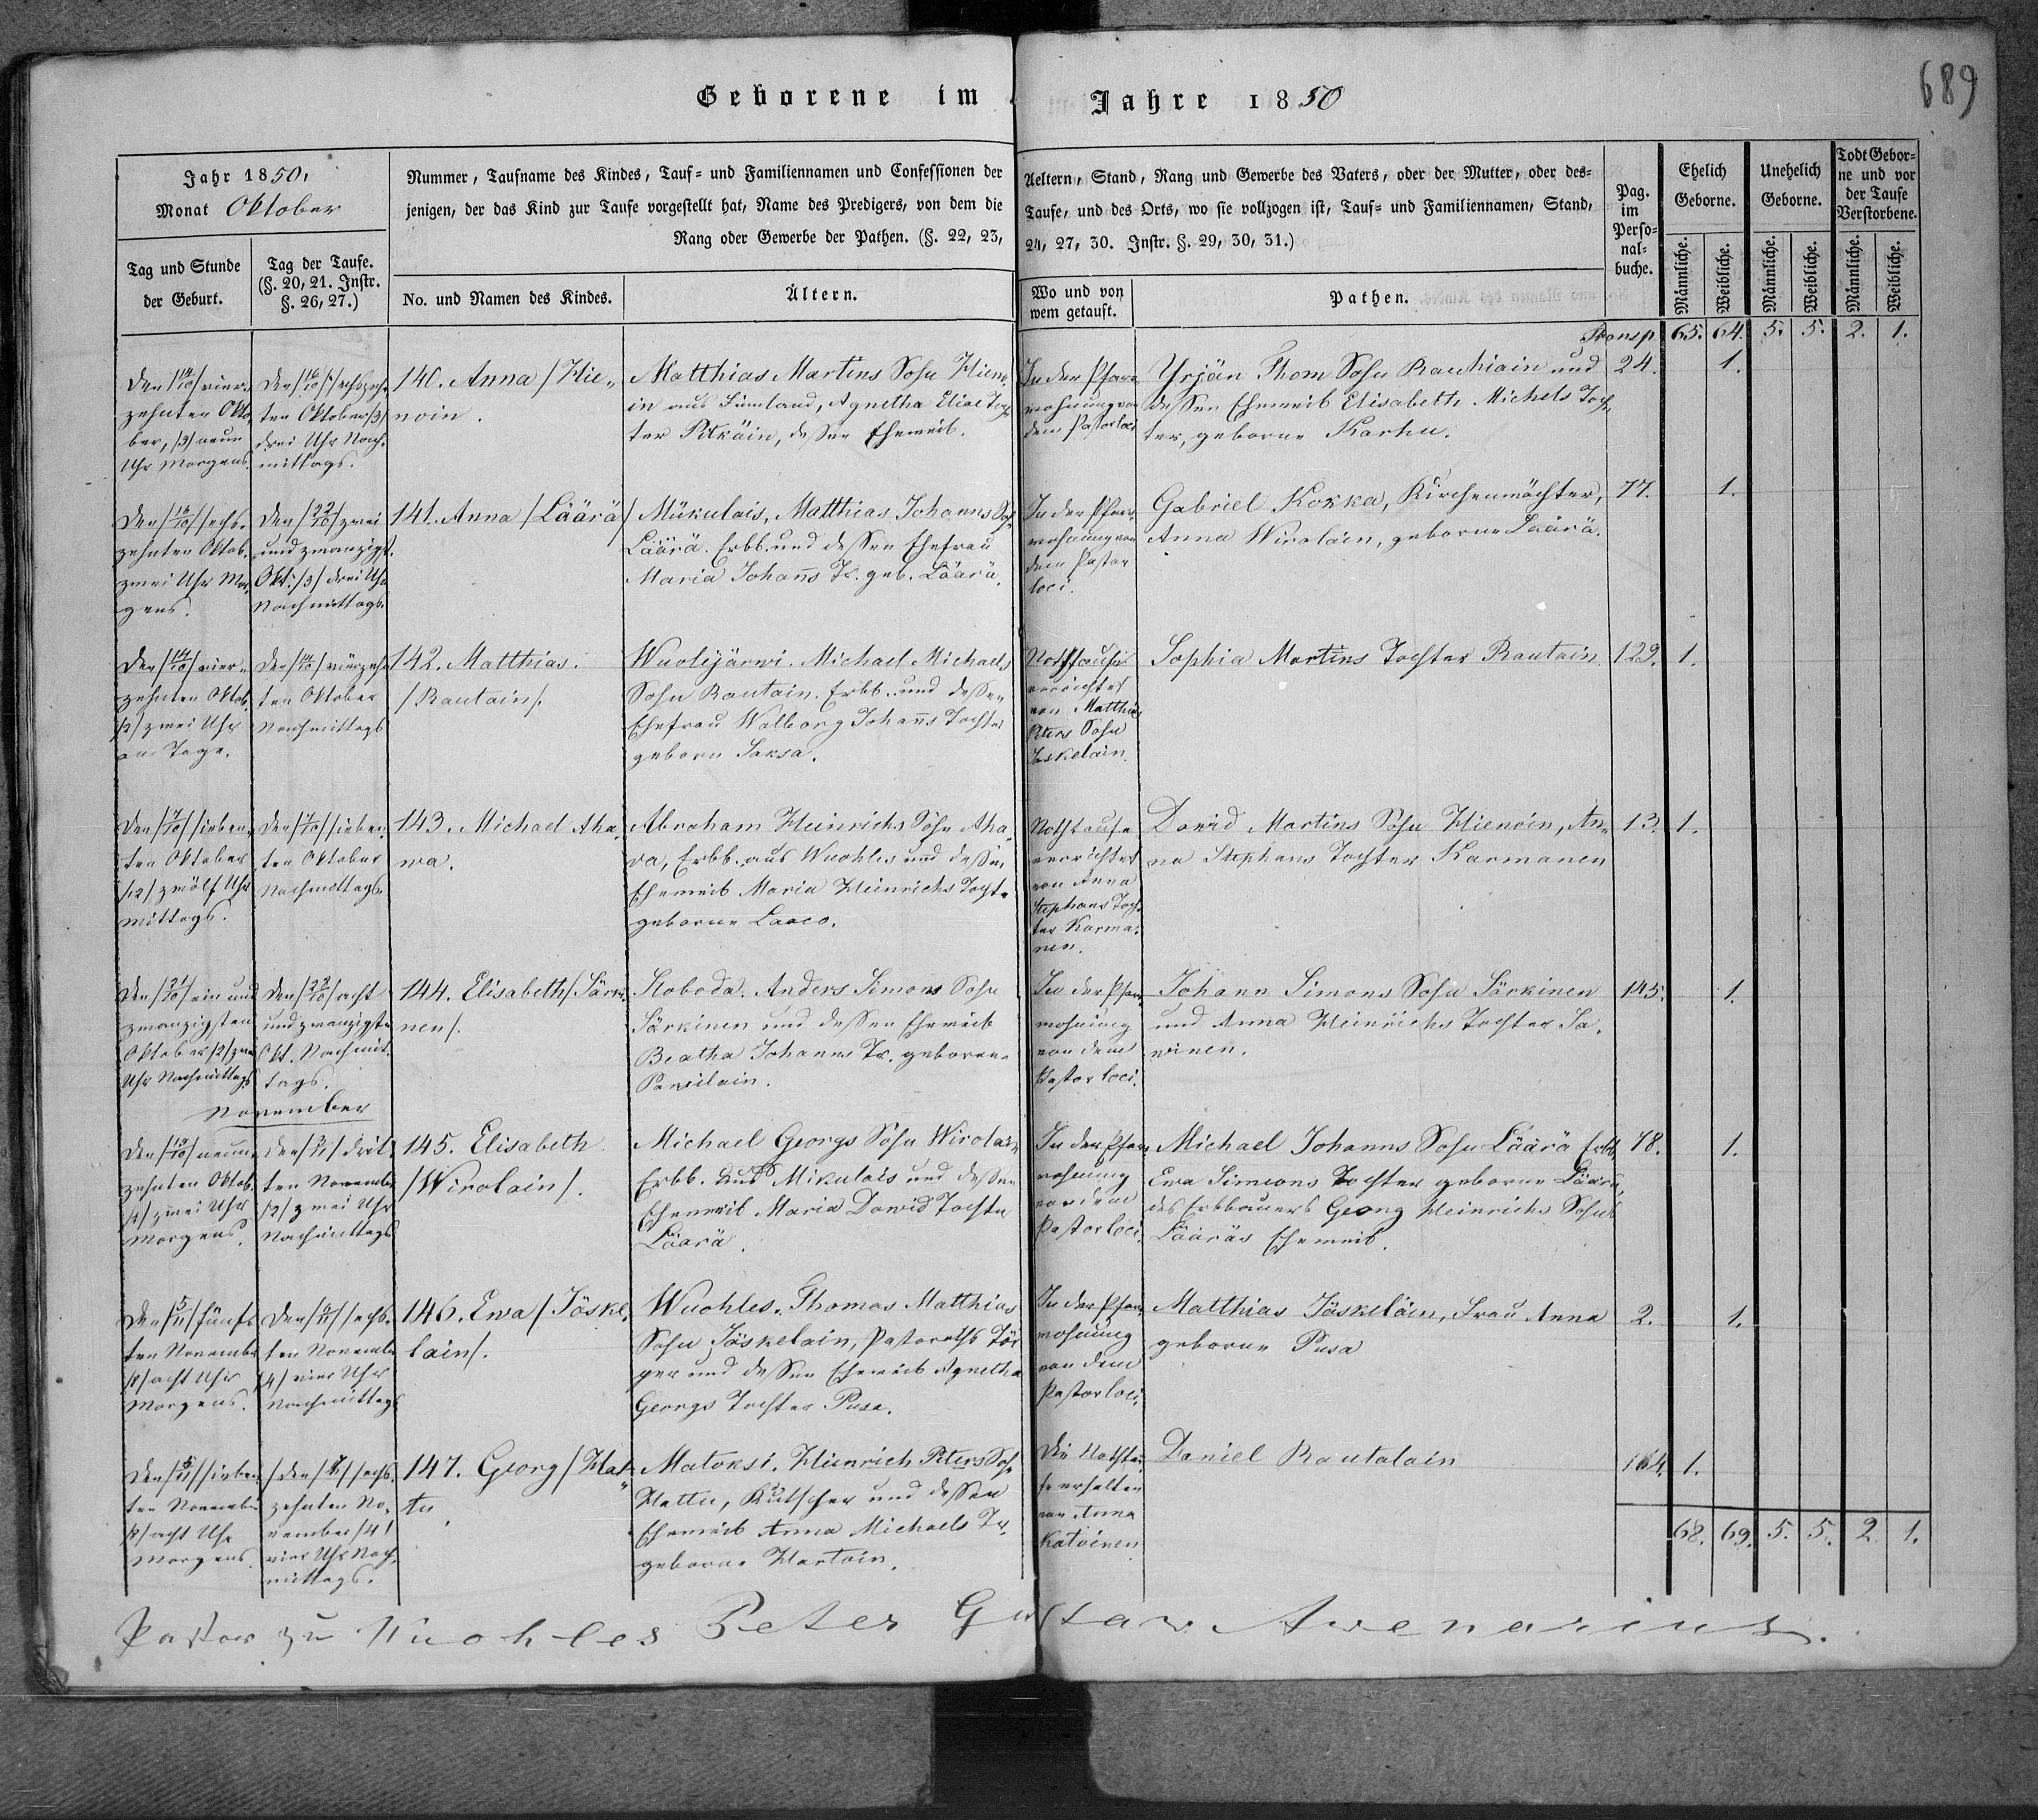 689
Geborene im Jahre 1850
Jahr 1850.
Monat Oktober
Nummer, Taufname des Kindes, Tauf- und Familiennamen und Confessionen der Aeltern, Stand, Rang und Gewerbe des Vaters, oder der Mutter, oder des-
jenigen, der das Kind zur Taufe vorgestellt hat, Name des Predigers, von dem die Taufe, und des Orts, wo sie vollzogen ist, Tauf- und Familiennamen, Stand,
Rang oder Gewerbe der Pathen. (§. 22, 23, 24, 27, 30. Instr. §. 29, 30, 31.)
Pag.
im
Perso-
nal-
buche.
Ehelich
Geborne.
Unehelich
Geborne.
Todt Gebor-
ne und vor
der Taufe
Verstorbene.
Männliche. Weibliche. Männliche. Weibliche. Männliche. Weibliche.
Tag und Stunde
der Geburt.
Tag der Taufe.
(§. 20, 21. Instr.
§. 26, 27.)
No. und Namen des Kindes.
Ältern.
Wo und von
wem getauft.
Pathen.
Transp 65. 64. 5. 5. 2. 1.
Den /14/10/ vier-
zehnten Okto-
ber, /9/ neun
Uhr Morgens.
Den /16/10/ sechszehn-
ten Oktober /3/
drei Uhr Nach-
mittags.
140. Anna /Hie-
noin.
Matthias Martins Sohn Hieno-
in aus Finnland, Agnetha Eliae Toch-
ter Pitkäin, dessen Eheweib.
In der Pfarr-
wohnung von
dem Pastor loci
Yrjän Thom Sohn Rauhiain und
dessen Eheweib Elisabeth Michels Toch-
ter, geborne Karhu.
24. 1.
Den /16/10/ sechs-
zehnten Oktob.
zwei Uhr Mor-
gens.
Den /22/10/ zwei
und zwanzigst.
Okt. /3/ drei Uhr
Nachmittags.
141. Anna /Läärä/
Mükulais, Matthias Johanns Soh
Läärä. Erbb. und dessen Ehefrau
Maria Johanns Tr. geb. Läärä.
In der Pfarr-
wohnung von
dem Pastor
loci.
Gabriel Kokka, Kirchenwächter,
Anna Wirolain, geborne Läärä.
77. 1.
Den /14/10/ vier-
zehnten Oktob.
/2/ zwei Uhr
am Tage.
Den /14/10/ vierzehn-
ten Oktober
Nachmittags
142. Matthias.
/Rautain/.
Wuolejärwi. Michael Michaels
Sohn Rautain. Erbb. und dessen
Ehefrau Walborg Johanns Tochter
geborn Saksa.
Nothtaufe
verrichtet
von Matthias
Peters Sohn
Jäskelain.
Sophia Martins Tochter Rautain
129. 1.
Den /7/10/ sieben-
ten Oktober
/12/ zwölf Uhr
Mittags.
Den /7/10/ sieben-
ten Oktober
Nachmittags.
143. Michael Aha-
wa.
Abraham Heinrichs Sohn Aha-
va, Erbb. aus Wuohles und dessen
Eheweib Maria Heinrichs Tocht.
geborne Laaco.
Nothtaufe
verrichtet
von Anna
Stephans Toch-
ter Karma-
nen.
David Martins Sohn Hienoin, An-
na Stephans Tochter Karmanen
13. 1.
Den /21/10/ ein und
zwanzigsten
Oktober /2/ zwei
Uhr Nachmittags
Den /22/10/ acht
und zwanzigsten
Okt. Nachmit-
tags.
144. Elisabeth /Särki-
nen/.
Sloboda. Anders Simons Sohn
Särkinen und dessen Eheweib
Beatha Johanns Tr. geborene
Pawilain.
In der Pfarr-
wohnung
von dem
Pastor loci.
Johann Simons Sohn Särkinen
und Anna Heinrichs Tochter Sa-
winen.
145. 1.
November
Den /19/10/ neun-
zehnten Oktob.
/2/ zwei Uhr
Morgens.
Den /3/11/ drit-
ten November
/2/ zwei Uhr
Nachmittags
145. Elisabeth
/Wirolain/.
Michael Georgs Sohn Wirolain
Erbb. aus Mikulais und dessen
Eheweib Maria Dawid Tochter
Läärä.
In der Pfarr-
wohnung
von dem
Pastor loci.
Michael Johanns Sohn Läärä Erbb.
Ewa Simeons Tochter geborne Läärä,
des Erbbauers Georg Heinrichs Sohns
Lääräs Eheweib.
78. 1.
Den /5/11/ fünf-
ten November
/8/ acht Uhr
Morgens.
Den /6/11/ sechs-
ten November
/4/ vier Uhr
Nachmittags
146. Ewa /Jäske-
lain/.
Wuohles. Thomas Matthias
Sohn Jäskelain, Pastoraths Tör-
per und dessen Eheweib Agnetha
Georgs Tochter Pusa.
In der Pfarr-
wohnung
von dem
Pastor loci.
Matthias Jäskeläin, Frau Anna
geborne Pusa
2. 1.
sieben-
ten November
/8/ acht Uhr
Morgens.
sechs-
zehnten No-
vember /4/
vier Uhr Nach-
mittags.
147. Georg /Hat-
tu.
Matoksi. Heinrich Peters Soh
Hattu, Kutscher und dessen
Eheweib Anna Michaels Tr.
geborne Hartoin.
Die Nothtau-
fe erhalten
von Anna
Katoinen
Daniel Rautalain
164. 1.
68. 69. 5. 5. 2. 1.
Pastor zu Wuohles Peter Gustav Avenarius.